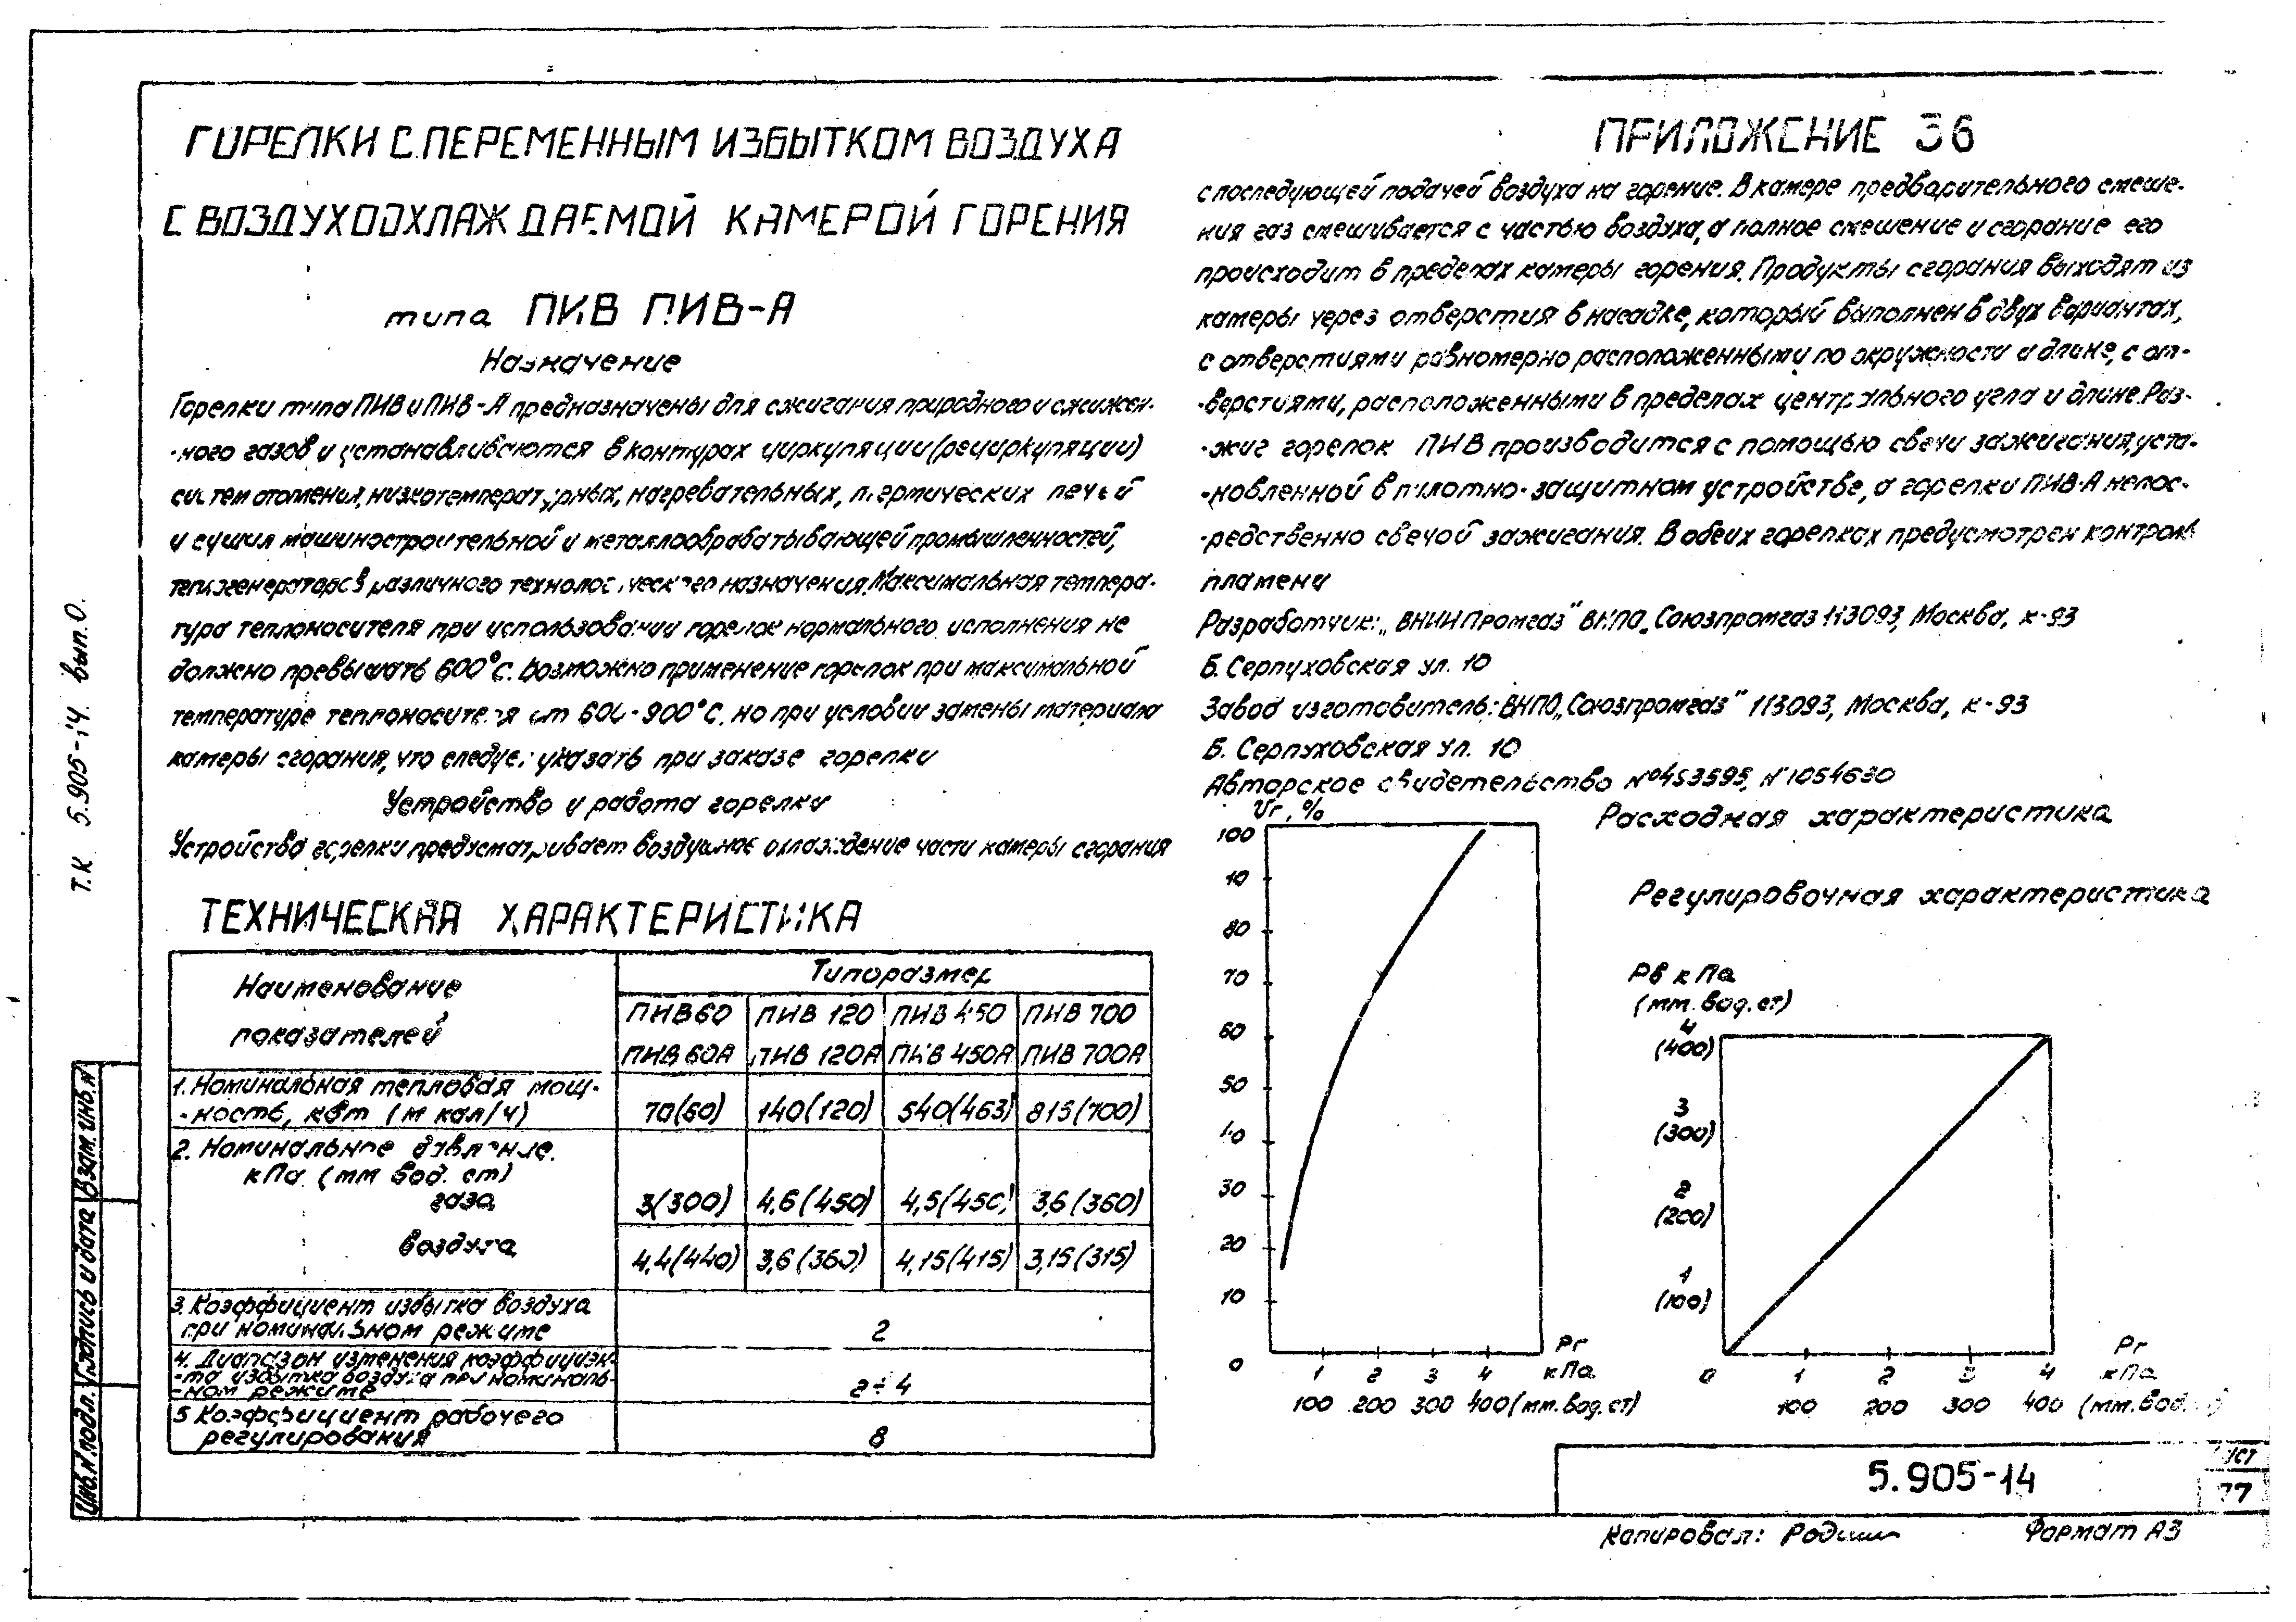 ПРИЛОЖЕНИЕ 36
ГОРЕЛКИ С ПЕРЕМЕННЫМ ИЗБЫТКОМ ВОЗДУХА
С ВОЗДУХООХЛАЖДАЕМОЙ КАМЕРОЙ ГОРЕНИЯ
типа ПИВ ПИВ-А
Назначение
Горелки типа ПИВ и ПИВ-А предназначены для сжигания природного и сжижен-
-ного газов и устанавливаются в контурах циркуляции (рециркуляции)
систем отопения, низкотемпературных, нагревательных, термических печей
и сушил машиностроительной и металлообрабатывающей промышленностей,
теплогенераторов различного технологического назначения. Максимальная темпера-
тура теплоносителя при использовании горелок нормального исполнения не
должно превышать 600°С. Возможно применение горелок при максимальной
температуре теплоносителя от 600-900°С. но при условии замены материала
камеры сгорания, что следует указать при заказе горелки
Устройство и работа горелки
Устройства горелки предусматривает воздушное охлаждение части камеры сгорания
с последующей подачей воздуха на горение. В камере предварительного смеше-
ния газ смешивается с частью воздуха, а полное смешение и сгорание его
происходит в пределах камеры горения. Продукты сгорания выходят из
камеры через отверстия в насадке, который выполнен в двух вариантах,
с отверстиями равномерно расположенными по окружности и длине, с от-
-верстиями, расположенными в пределах центрального угла и длине. Раз-
-жиг горелок ПИВ производится с помощью свечи зажигания, уста-
-новленной в пилотно-защитном устройстве, а горелки ПИВ-А непос-
-редственно свечой зажигания. В обеих горелках предусмотрен контроль
пламени
Разработчик: „ВНИИПромгаз" ВНПО „Союзпромгаз 113093, Москва, к-93
Б. Серпуховская ул. 10
Завод изготовитель: ВНПО „Союзпромгаз" 113093, Москва, к-93
Б. Серпуховская ул. 10
Авторское свидетельство №453595, №1054630
ТЕХНИЧЕСКАЯ ХАРАКТЕРИСТИКА
Наименование показателей
Типоразмер
ПИВ 60 ПИВ 120 ПИВ 450 ПИВ 700
ПИВ 60А ПИВ 120А ПИВ 450А ПИВ 700А
1. Номинальная тепловая мощ-
-ность, квт (м кал/ч) 70(60) 140(120) 540(463) 815(700)
2. Номинальное давление.
кПа (мм вод. ст)
газа 3(300) 4,6(450) 4,5(450) 3,6(360)
воздуха 4,4(440) 3,6(360) 4,15(415) 3,15(315)
3. Коэффициент избытка воздуха
при номинальном режиме 2
4. Диапазон изменения коэффициен-
-та избытка воздуха при номиналь-
-ном режиме 2÷4
5 Коэффициент рабочего
регулирования 8
Расходная характеристика
Vг, %
100
90
80
70
60
50
40
30
20
10
0
1 2 3 4 Рг кПа
100 200 300 400 (мм. вод. ст)
Регулировочная характеристика
Рв кПа
(мм. вод. ст)
4
(400)
3
(300)
2
(200)
1
(100)
0 1 2 3 4 Рг кПа
100 200 300 400 (мм. вод.
5.905-14
77
Копировал:
Формат А3
Т.К. 5.905-14 вып. 0.
Инв. № подл.
Подпись и дата
Взам. инв. №